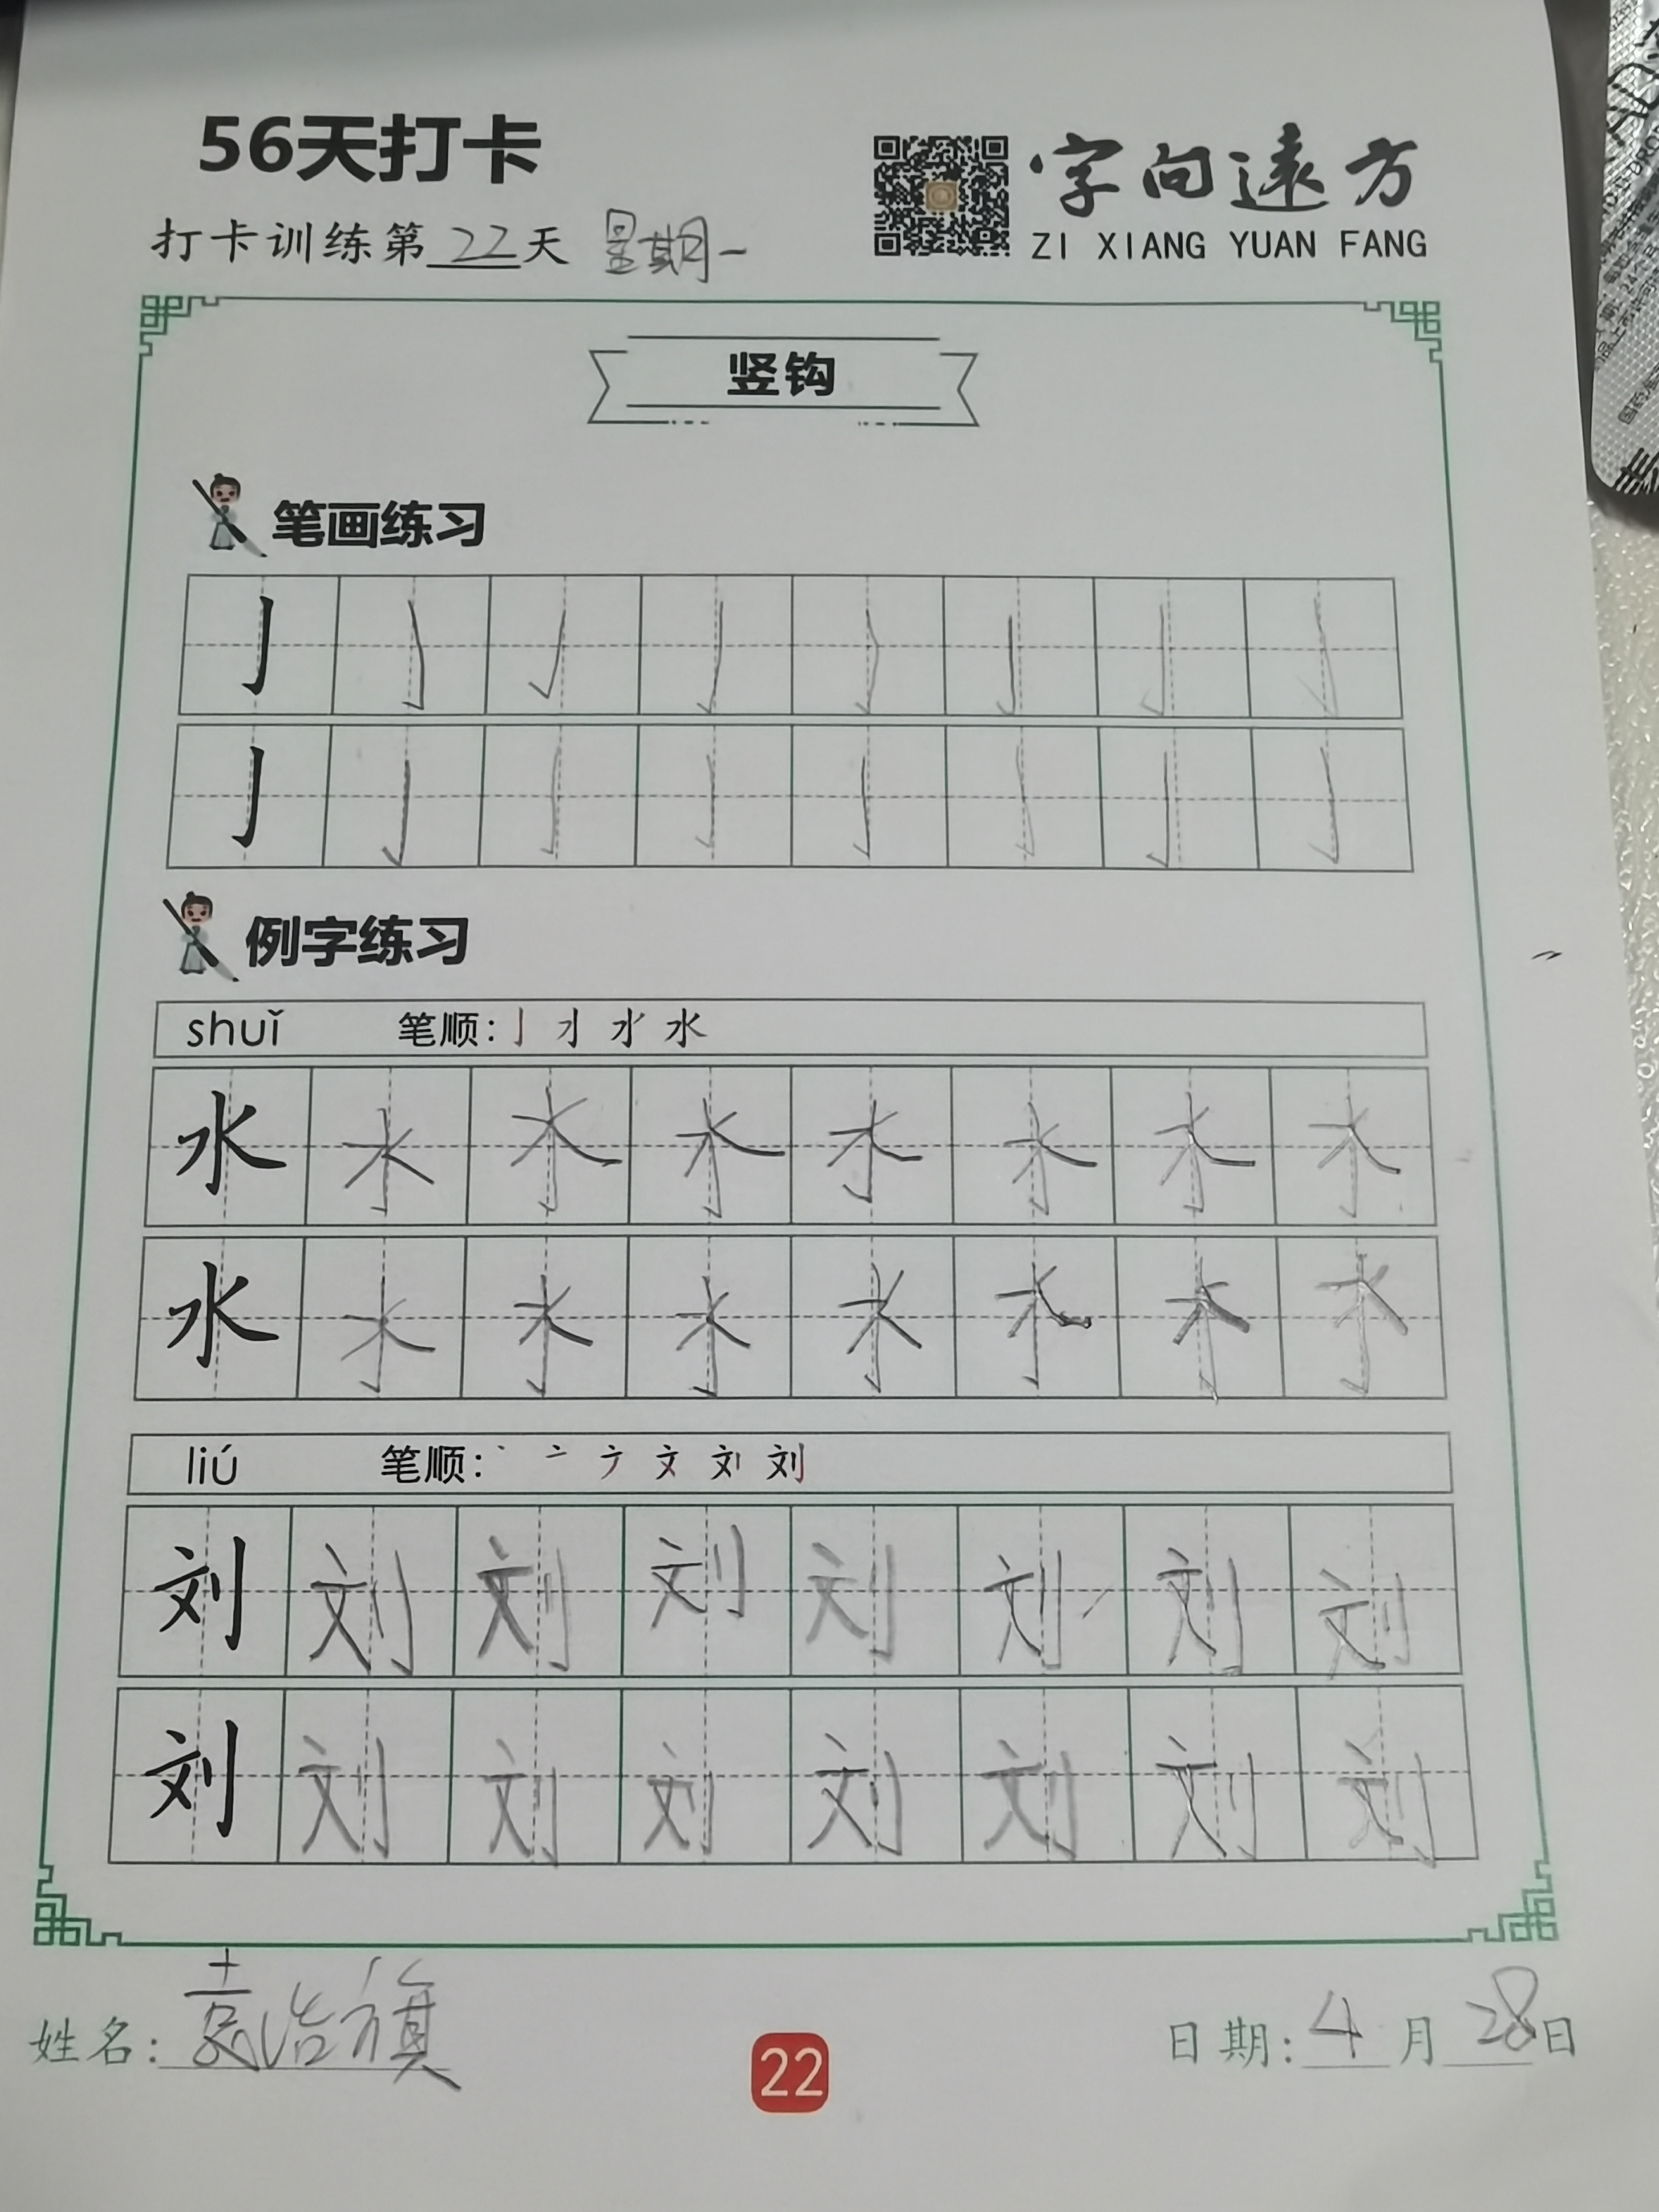 56天打卡
字向遠方
ZI XIANG YUAN FANG
打卡训练第22天 星期一
竖钩
笔画练习
亅 亅 亅 亅 亅 亅 亅 亅
亅 亅 亅 亅 亅 亅 亅 亅
例字练习
shuǐ 笔顺: 水
水 水 水 水 水 水 水 水
水 水 水 水 水 水 水 水
liú 笔顺: 丶 亠 文 刘
刘 刘 刘 刘 刘 刘 刘 刘
刘 刘 刘 刘 刘 刘 刘 刘
姓名: 浩旗
日期: 4月28日
22